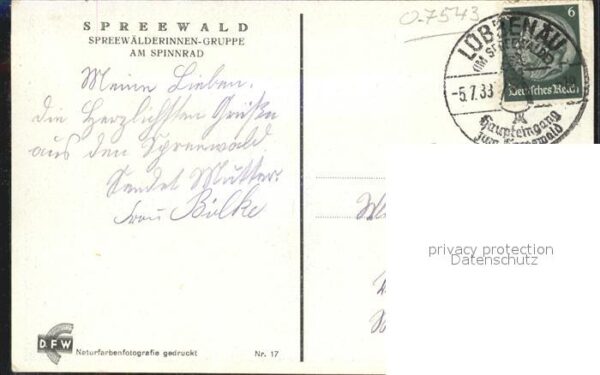 SPREEWALD
SPREEWÄLDERINNEN-GRUPPE
AM SPINNRAD
Meine Lieben.
die Herzlichsten Grüße
aus den Spreewald
Sendet Mutter.
Frau Bölke
DFW
Naturfarbenfotografie gedruckt
Nr. 17
0-7543
6
Deutsches Reich
LÜBBENAU
(IM SPREEWALD)
-5.7.33
Haupteingang
zum Spreewald
privacy protection
Datenschutz